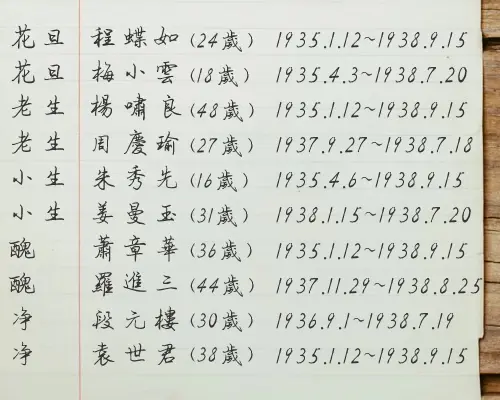 花旦 程蝶如(24歲) 1935.1.12~1938.9.15
花旦 梅小雲(18歲) 1935.4.3~1938.7.20
老生 楊嘯良(48歲) 1935.1.12~1938.9.15
老生 周慶瑜(27歲) 1937.9.27~1938.7.18
小生 朱秀先(16歲) 1935.4.6~1938.9.15
小生 姜曼玉(31歲) 1938.1.15~1938.7.20
醜 蕭章華(36歲) 1935.1.12~1938.9.15
醜 羅進三(44歲) 1937.11.29~1938.8.25
净 段元樓(30歲) 1936.9.1~1938.7.19
净 袁世君(38歲) 1935.1.12~1938.9.15